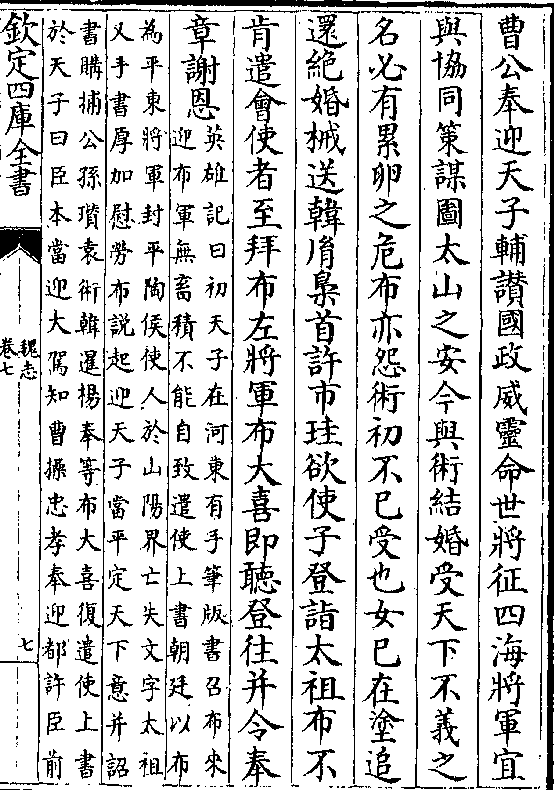 曹公奉迎天子輔讃國政威靈命世將征四海將軍宜
與協同策謀圖太山之安今與術結婚受天下不義之
名必有累卵之危布亦怨術初不已受也女已在塗追
還絶婚械送韓𦙍梟首許市珪欲使子登詣太祖布不
肯遣會使者至拜布左將軍布大喜即聽登往并令奉
章謝恩英雄記曰初天子在河東有手筆版書召布來
迎布軍無畜積不能自致遣使上書朝廷以布
為平東將軍封平陶侯使人於山陽界亡失文字太祖
又手書厚加慰勞布說起迎天子當平定天下意并詔
書購捕公孫瓚袁術韓暹楊奉等布大喜復遣使上書
於天子曰臣本當迎大駕知曹操忠孝奉迎都許臣前
欽定四庫全書
魏志
卷七
七